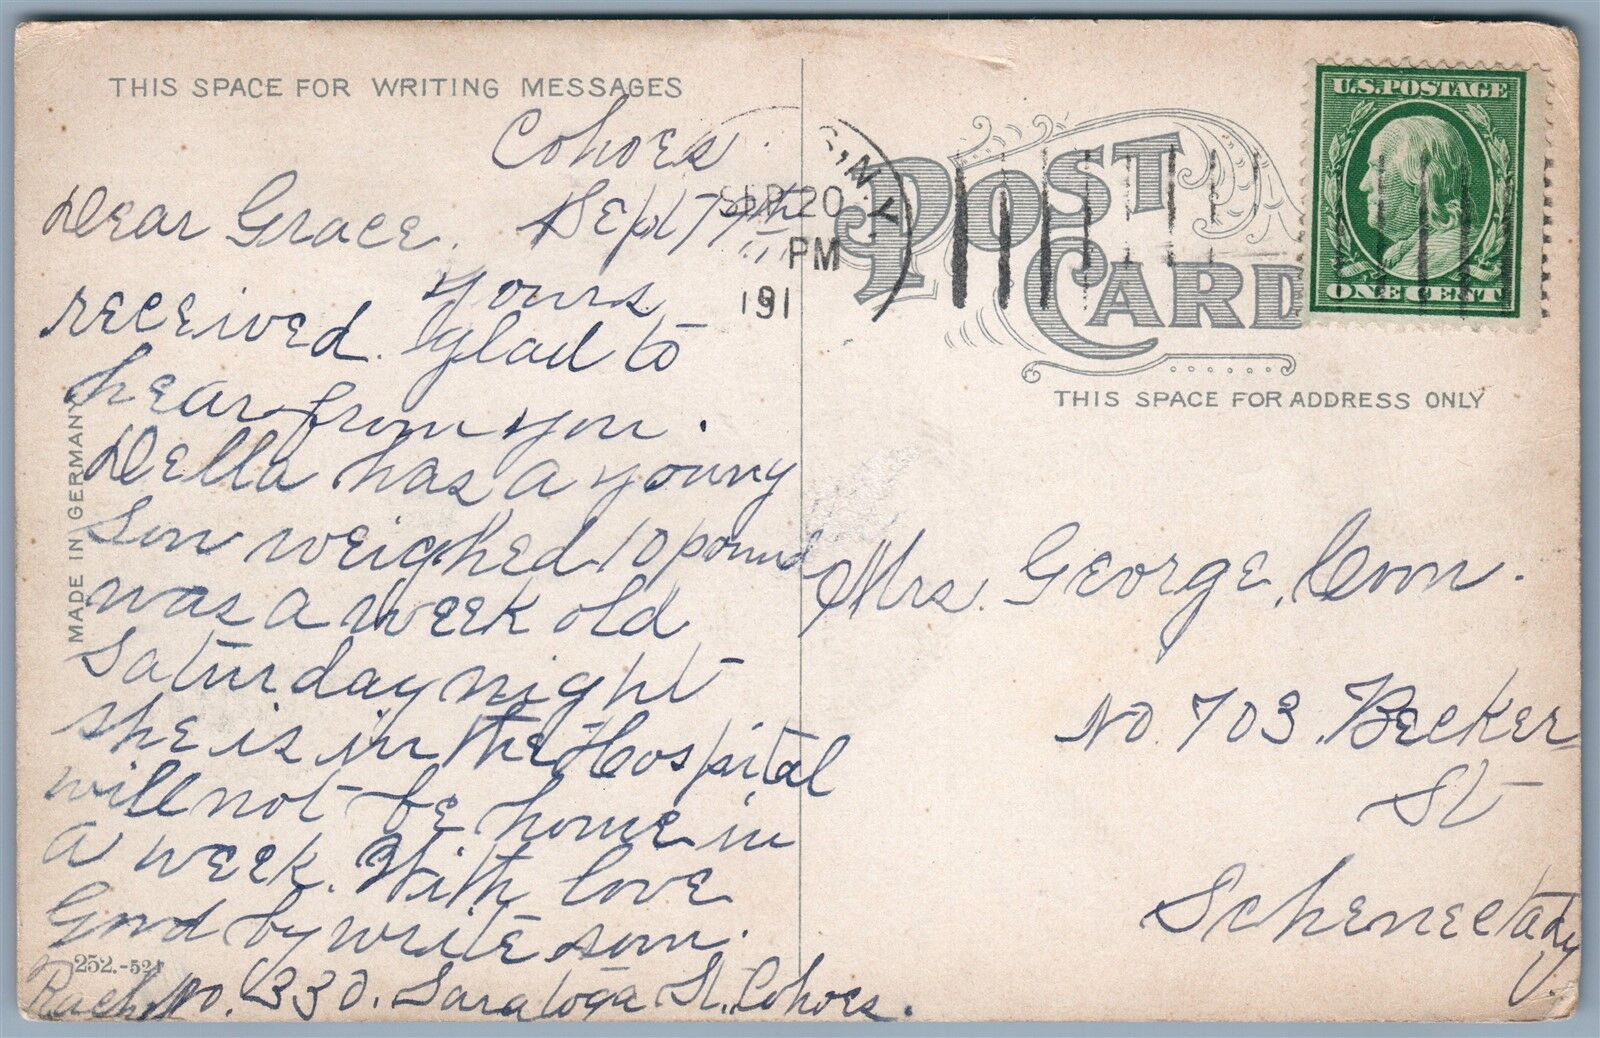 THIS SPACE FOR WRITING MESSAGES
Cohoes
Dear Grace. Sept 19th
yours
received. glad to
hear from you.
Della has a young
Son weighed 10 pound
was a week old
Saturday night
she is in the Hospital
will not be home in
a week. With love
Good by write soon.
Rachel No. 330. Saratoga St. Cohoes.
MADE IN GERMANY
252.-521
N.Y.
SEP 20
PM
191
POST
CARD
U.S. POSTAGE
ONE CENT
THIS SPACE FOR ADDRESS ONLY
Mrs. George.
No. 703. Becker
St
Schenectady